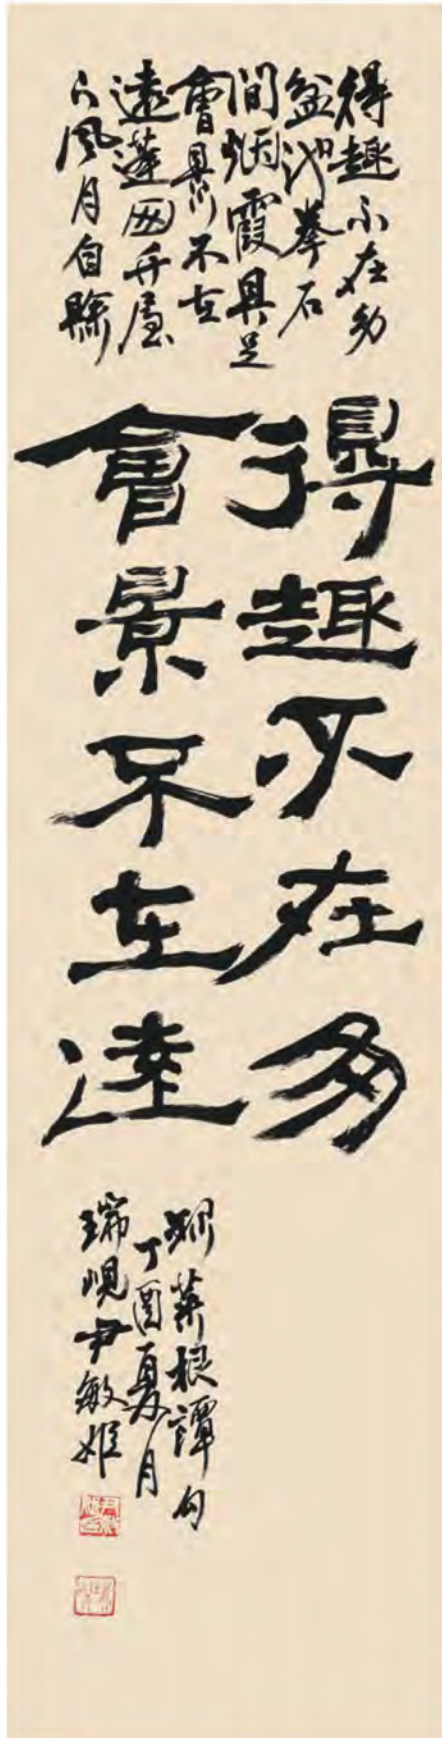 得趣不在多
盆池拳石
間烟霞具足
會景不在
遠蓬囪竹屋
下風月自賒
得趣不在多
會景不在遠
菜根譚句
丁酉夏月
瑞峴尹敏姬